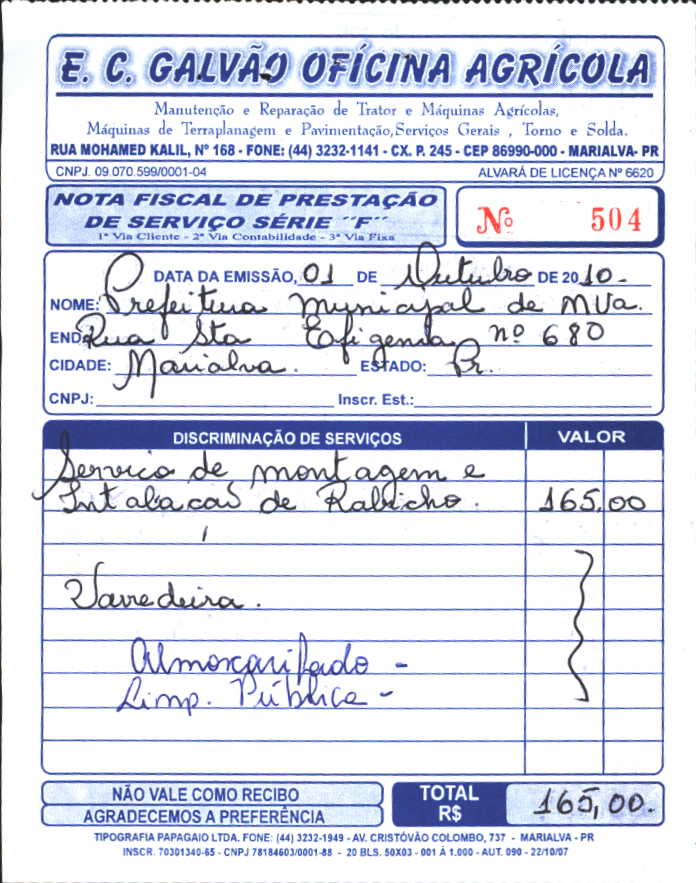 E. C. GALVÃO OFÍCINA AGRÍCOLA
Manutenção e Reparação de Trator e Máquinas Agrícolas,
Máquinas de Terraplanagem e Pavimentação,Serviços Gerais , Torno e Solda.
RUA MOHAMED KALIL, Nº 168 - FONE: (44) 3232-1141 - CX. P. 245 - CEP 86990-000 - MARIALVA- PR
CNPJ. 09.070.599/0001-04 ALVARÁ DE LICENÇA Nº 6620
NOTA FISCAL DE PRESTAÇÃO
DE SERVIÇO SÉRIE ´´F´´
1ª Via Cliente - 2ª Via Contabilidade - 3ª Via Fixa
Nº 504
DATA DA EMISSÃO, 01 DE Outubro DE 2010.
NOME: Prefeitura Municipal de MVa.
END. Rua Sta Efigenia nº 680
CIDADE: Marialva. ESTADO: Pr.
CNPJ: Inscr. Est.:
DISCRIMINAÇÃO DE SERVIÇOS VALOR
Serviço de montagem e
Intalacaõ de Rabicho. 165,00
Varredeira.
Almoxarifado -
Limp. Pública -
NÃO VALE COMO RECIBO
AGRADECEMOS A PREFERÊNCIA
TOTAL R$ 165,00.
TIPOGRAFIA PAPAGAIO LTDA. FONE: (44) 3232-1949 - AV. CRISTÓVÃO COLOMBO, 737 - MARIALVA - PR
INSCR. 70301340-65 - CNPJ 78184603/0001-88 - 20 BLS. 50X03 - 001 À 1.000 - AUT. 090 - 22/10/07